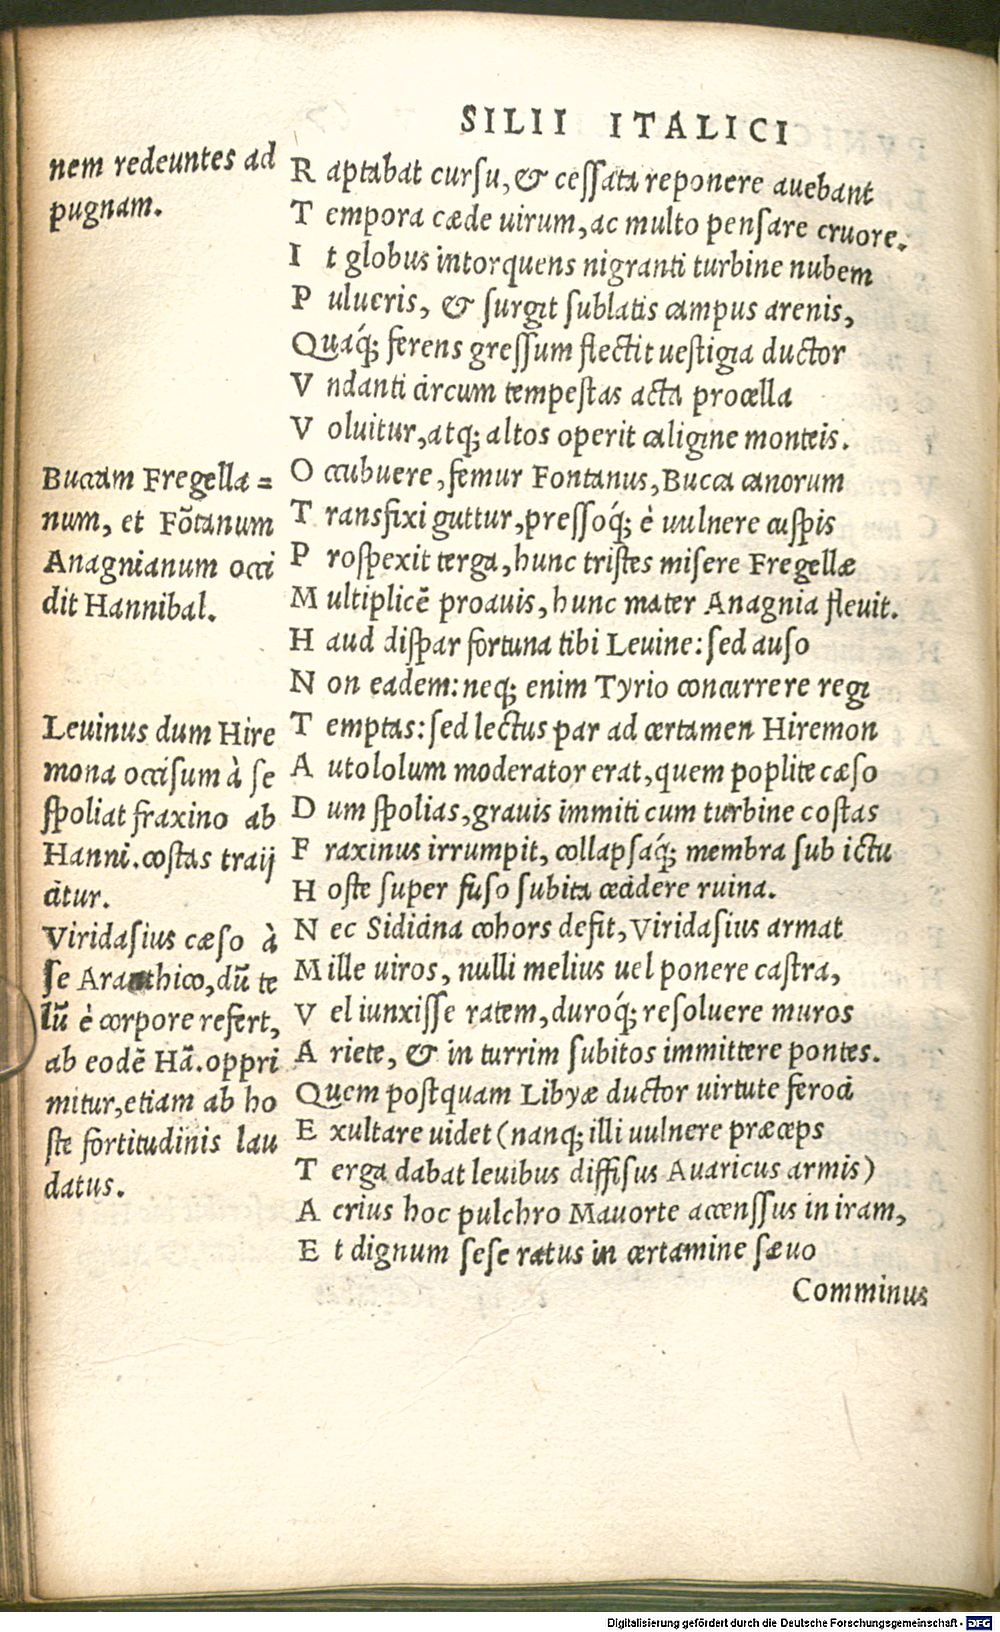 SILII ITALICI
nem redeuntes ad
pugnam.
Raptabat cursu, & cessata reponere auebant
Tempora cæde uirum, ac multo pensare cruore.
It globus intorquens nigranti turbine nubem
Pulueris, & surgit sublatis campus arenis,
Quáq; ferens gressum flectit uestigia ductor
Vndanti circum tempestas acta procella
Voluitur, atq; altos operit caligine monteis.
Buccam Fregella=
num, et Fõtanum
Anagnianum occi
dit Hannibal.
Occubuere, femur Fontanus, Bucca canorum
Transfixi guttur, pressoq́; è uulnere cuspis
Prospexit terga, hunc tristes misere Fregellæ
Multiplicẽ proauis, hunc mater Anagnia fleuit.
Haud dispar fortuna tibi Leuine: sed auso
Non eadem: neq; enim Tyrio concurrere regi
Leuinus dum Hire
mona occisum à se
spoliat fraxino ab
Hanni. costas traij
citur.
Temptas: sed lectus par ad certamen Hiremon
Autololum moderator erat, quem poplite cæso
Dum spolias, grauis immiti cum turbine costas
Fraxinus irrumpit, collapsaq́; membra sub ictu
Hoste super fuso subita cecidere ruina.
Viridasius cæso à
se Aranthico, dũ te
lũ è corpore refert,
ab eodẽ Hã. oppri
mitur, etiam ab ho
ste fortitudinis lau
datus.
Nec Sidicina cohors defit, Viridasius armat
Mille uiros, nulli melius uel ponere castra,
Vel iunxisse ratem, duroq́; resoluere muros
Ariete, & in turrim subitos immittere pontes.
Quem postquam Libyæ ductor uirtute feroci
Exultare uidet (nanq; illi uulnere præceps
Terga dabat leuibus diffisus Auaricus armis)
Acrius hoc pulchro Mauorte accenssus in iram,
Et dignum sese ratus in certamine sæuo
Comminus
Digitalisierung gefördert durch die Deutsche Forschungsgemeinschaft - DFG